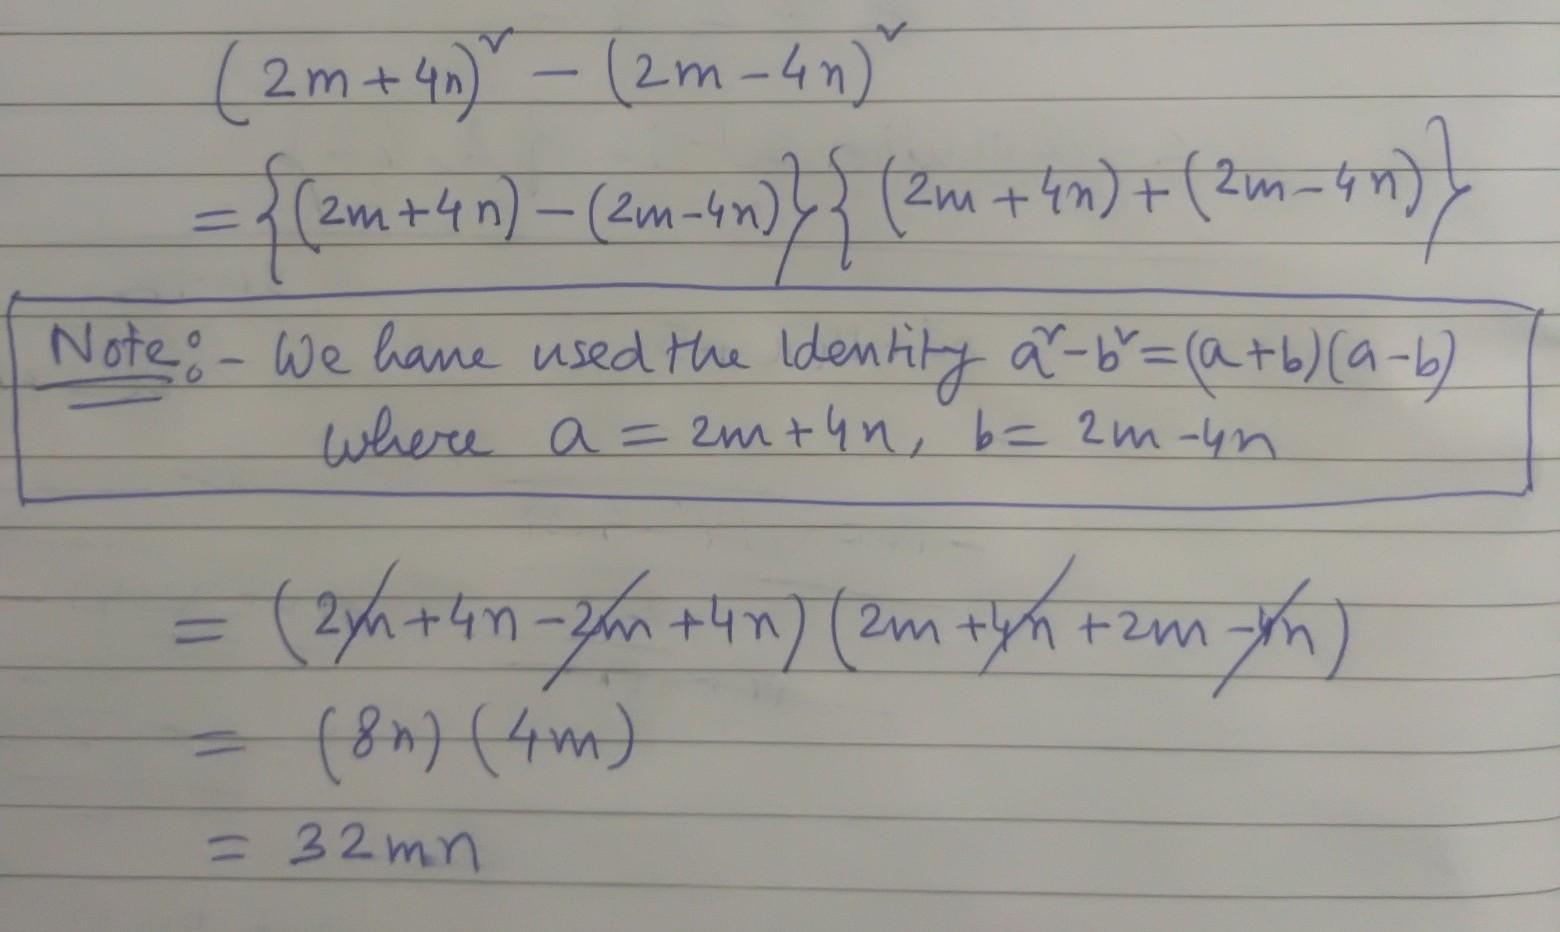 (2m+4n)² - (2m-4n)²
= {(2m+4n) - (2m-4n)} {(2m+4n) + (2m-4n)}
Note:- We have used the Identity a²-b² = (a+b)(a-b)
where a = 2m+4n, b = 2m-4n
= (2m+4n-2m+4n) (2m+4n+2m-4n)
= (8n) (4m)
= 32mn